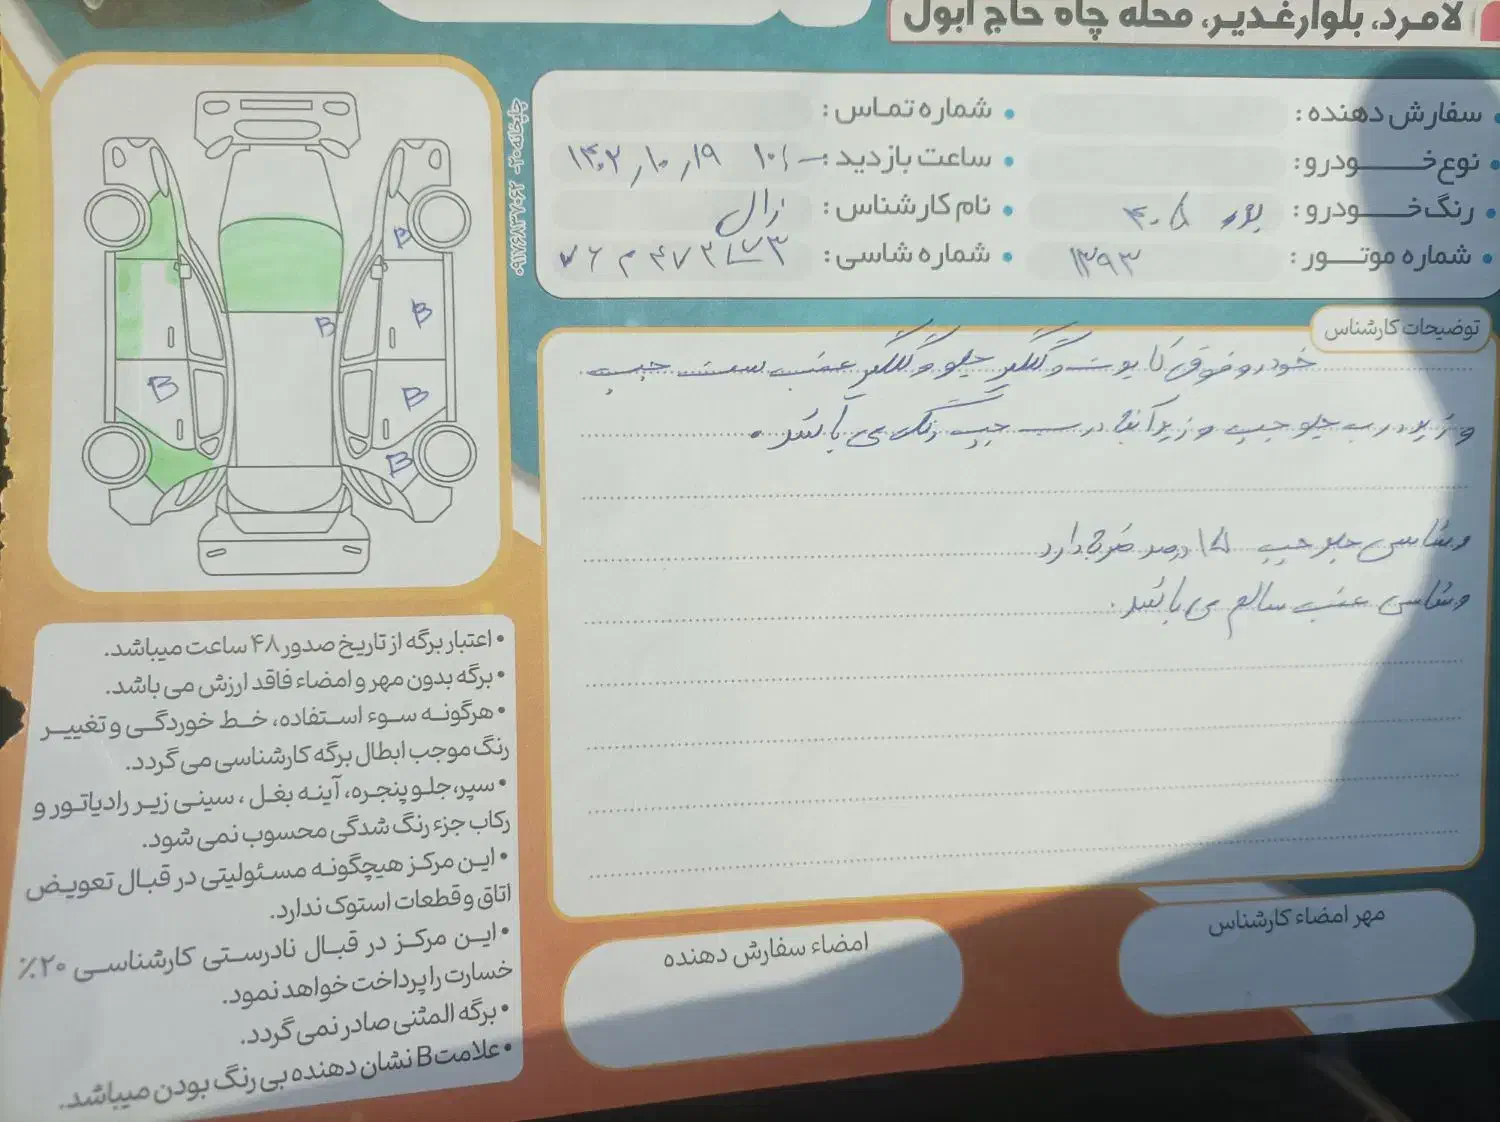 لامرد، بلوارغدیر، محله چاه حاج ابول
سفارش دهنده :
شماره تماس :
نوع خـــودرو :
ساعت بازدید : ۱۰ ۱۴۰۲٫۱۰٫۱۹
رنگ خـــودرو : پژو ۴۰۵
نام کارشناس : زال
شماره موتـــور : ۱۳۹۳
شماره شاسی :
توضیحات کارشناس
خودرو فوق کاپوت و گلگیر جلو و گلگیر عقب سمت چپ
و زیر درب جلو چپ و زیر آینه درب چپ رنگ می باشد.
وشاسی جلو چپ ۱۵ درصد ضربه دارد
وشاسی عقب سالم می باشد.
B
B
B
B
B
B
چاپخانه ۲۰- ۰۹۱۷۶۸۳۷۰۶۲
• اعتبار برگه از تاریخ صدور ۴۸ ساعت میباشد.
• برگه بدون مهر و امضاء فاقد ارزش می باشد.
• هرگونه سوء استفاده، خط خوردگی و تغییر
رنگ موجب ابطال برگه کارشناسی می گردد.
• سپر، جلو پنجره، آینه بغل ، سینی زیر رادیاتور و
رکاب جزء رنگ شدگی محسوب نمی شود.
• این مرکز هیچگونه مسئولیتی در قبال تعویض
اتاق و قطعات استوک ندارد.
• این مرکز در قبال نادرستی کارشناسی ۲۰٪
خسارت را پرداخت خواهد نمود.
• برگه المثنی صادر نمی گردد.
• علامت B نشان دهنده بی رنگ بودن میباشد.
امضاء سفارش دهنده
مهر امضاء کارشناس